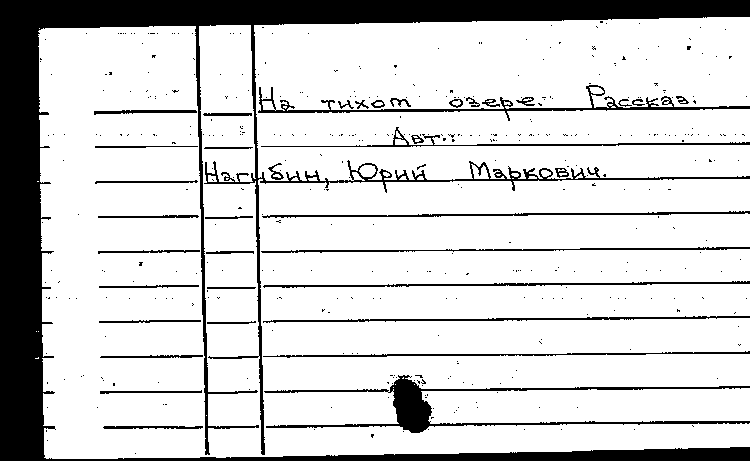 На тихом озере. Рассказ.
Авт.:
Нагибин, Юрий Маркович.